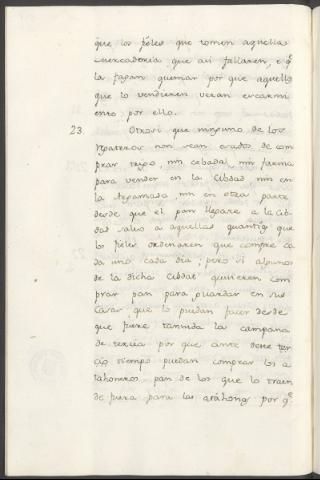 que los fieles que tomen aquellas
mercaderia que asi fallaren, e q̃
la fagan quemar por que aquellos
que lo vendieren vean escarmi
ento por ello.
23. Otrosi que ninguno de los
Rgateros non sean osados de com
prar trigo, nin cebada, nin farina
para vender en la Cibdad nin en
la nin en otra parte
desde que el pan llegare a la Cib
dad salvo a aquellas quantias que
los fieles ordenaren que compre ca
da uno cada dia; pero si algunos
de la dicha Cibdat quisieren com
prar pan para guardar en sus
Casas que lo puedan facer desde
que fuere tannida la campana
de tercia por que ante deste ter
cio tiempo puedan comprar los a
tahoneros pan de los que lo traen
de fuera para las atahonas por q̃